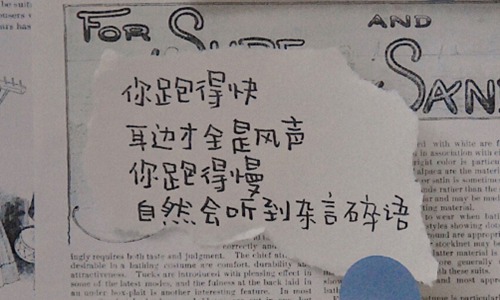 be suit
FOR
AND
SURF
SAND
你跑得快
耳边才全是风声
你跑得慢
自然会听到杂言碎语
ed with white are f
in association with
right color is particu
alpaca are the materi
or satin is sometimes
ands rather than the
and may be mad
ting material.
to wear when bat
styles showing dut
ound are appropri
stockinet may be
latter material is
more generally
these suits.
and most app
correctly and
ingly requires both taste and judgment. The chief att
desirable in a bathing costume are comfort, durability an
attractiveness. Tucks are introduced with pleasing effect in
some of the latest modes, and the fulness at the back laid in
an under box-plait is another interesting feature. In most